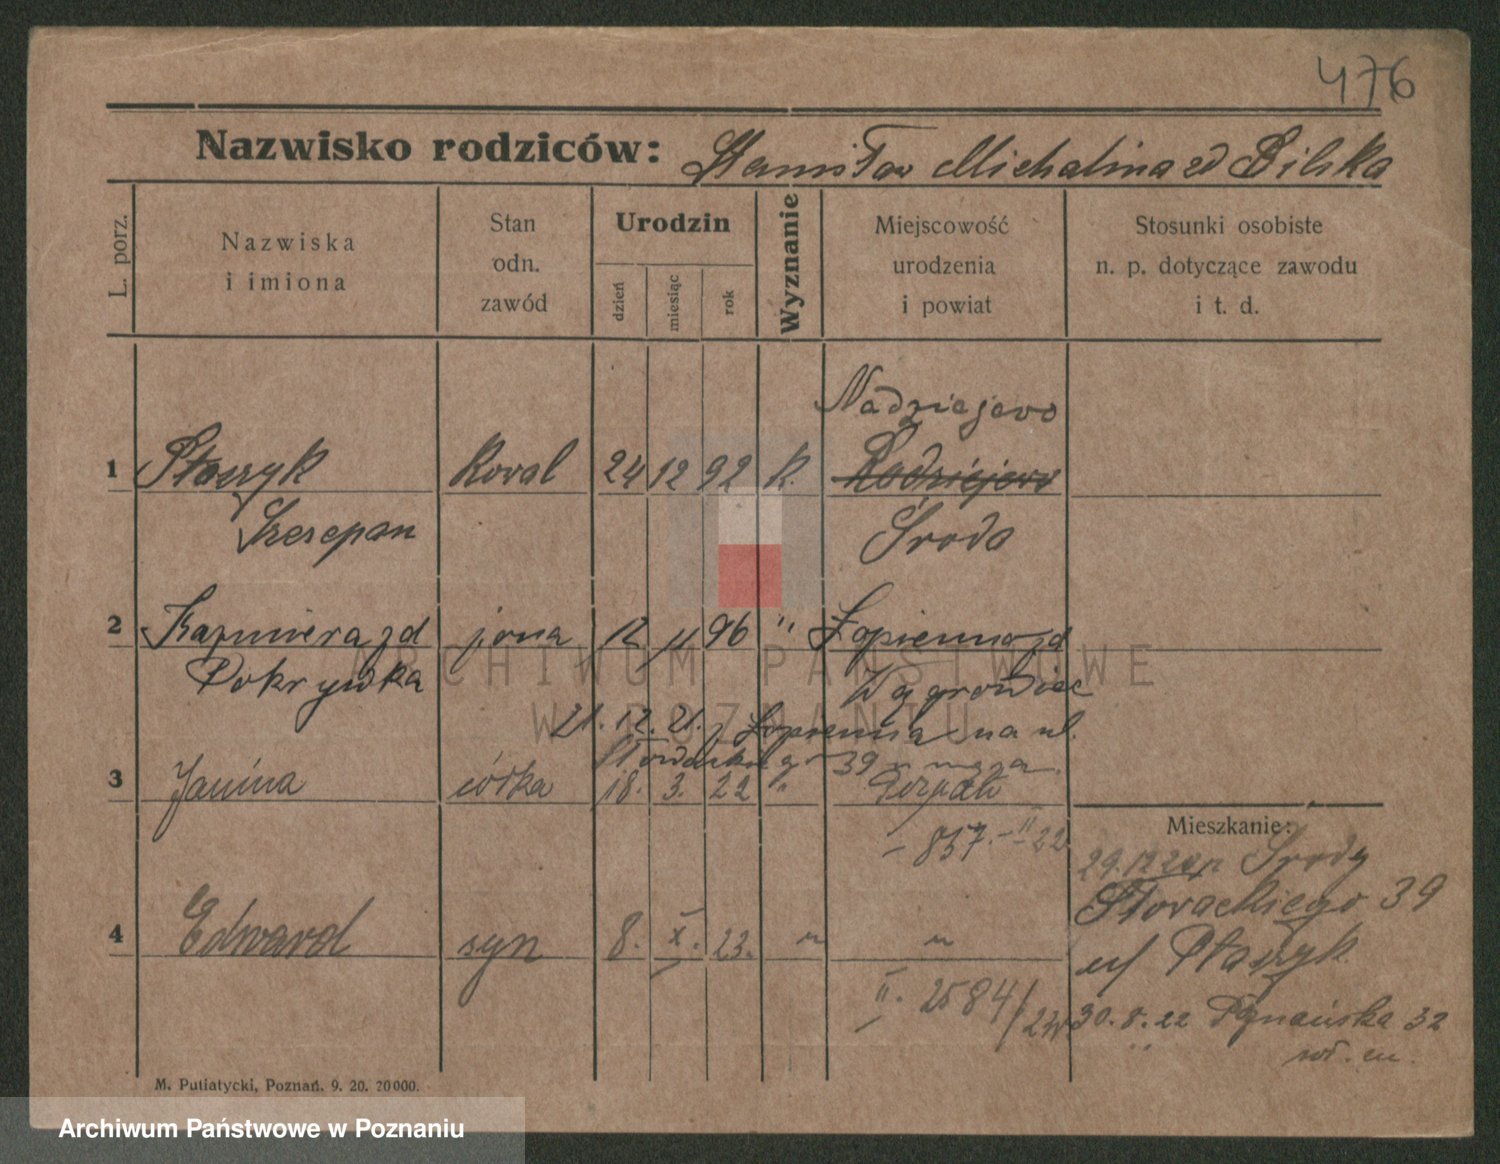 476
Nazwisko rodziców: Stanisław Michalina zd Bilska
L. porz.
Nazwiska i imiona
Stan odn. zawód
Urodzin
dzień
miesiąc
rok
Wyznanie
Miejscowość urodzenia i powiat
Stosunki osobiste n. p. dotyczące zawodu i t. d.
Nadziejewo
1 Ptaszyk Koval 24 12 92 k. Radziejewo
Szczepan Środa
2 Kazimiera zd żona 12 11 96 " Łopienno zd
Pokrywka Wągrowiec
21. 12. 21. z Łopienna na ul.
Słowackiego 39 m męża
3 Janina córka 18. 3. 22 "
- 857. - II 22
Mieszkanie:
29.12 20 z Środy
Słowackiego 39
u/ Ptaszyk
4 Edward syn 8. X. 23. " "
II. 2584/23
30. 8. 22 Poznańska 32
wł. m.
M. Putiatycki, Poznań. 9. 20. 20000.
ARCHIWUM PAŃSTWOWE
W POZNANIU
Archiwum Państwowe w Poznaniu